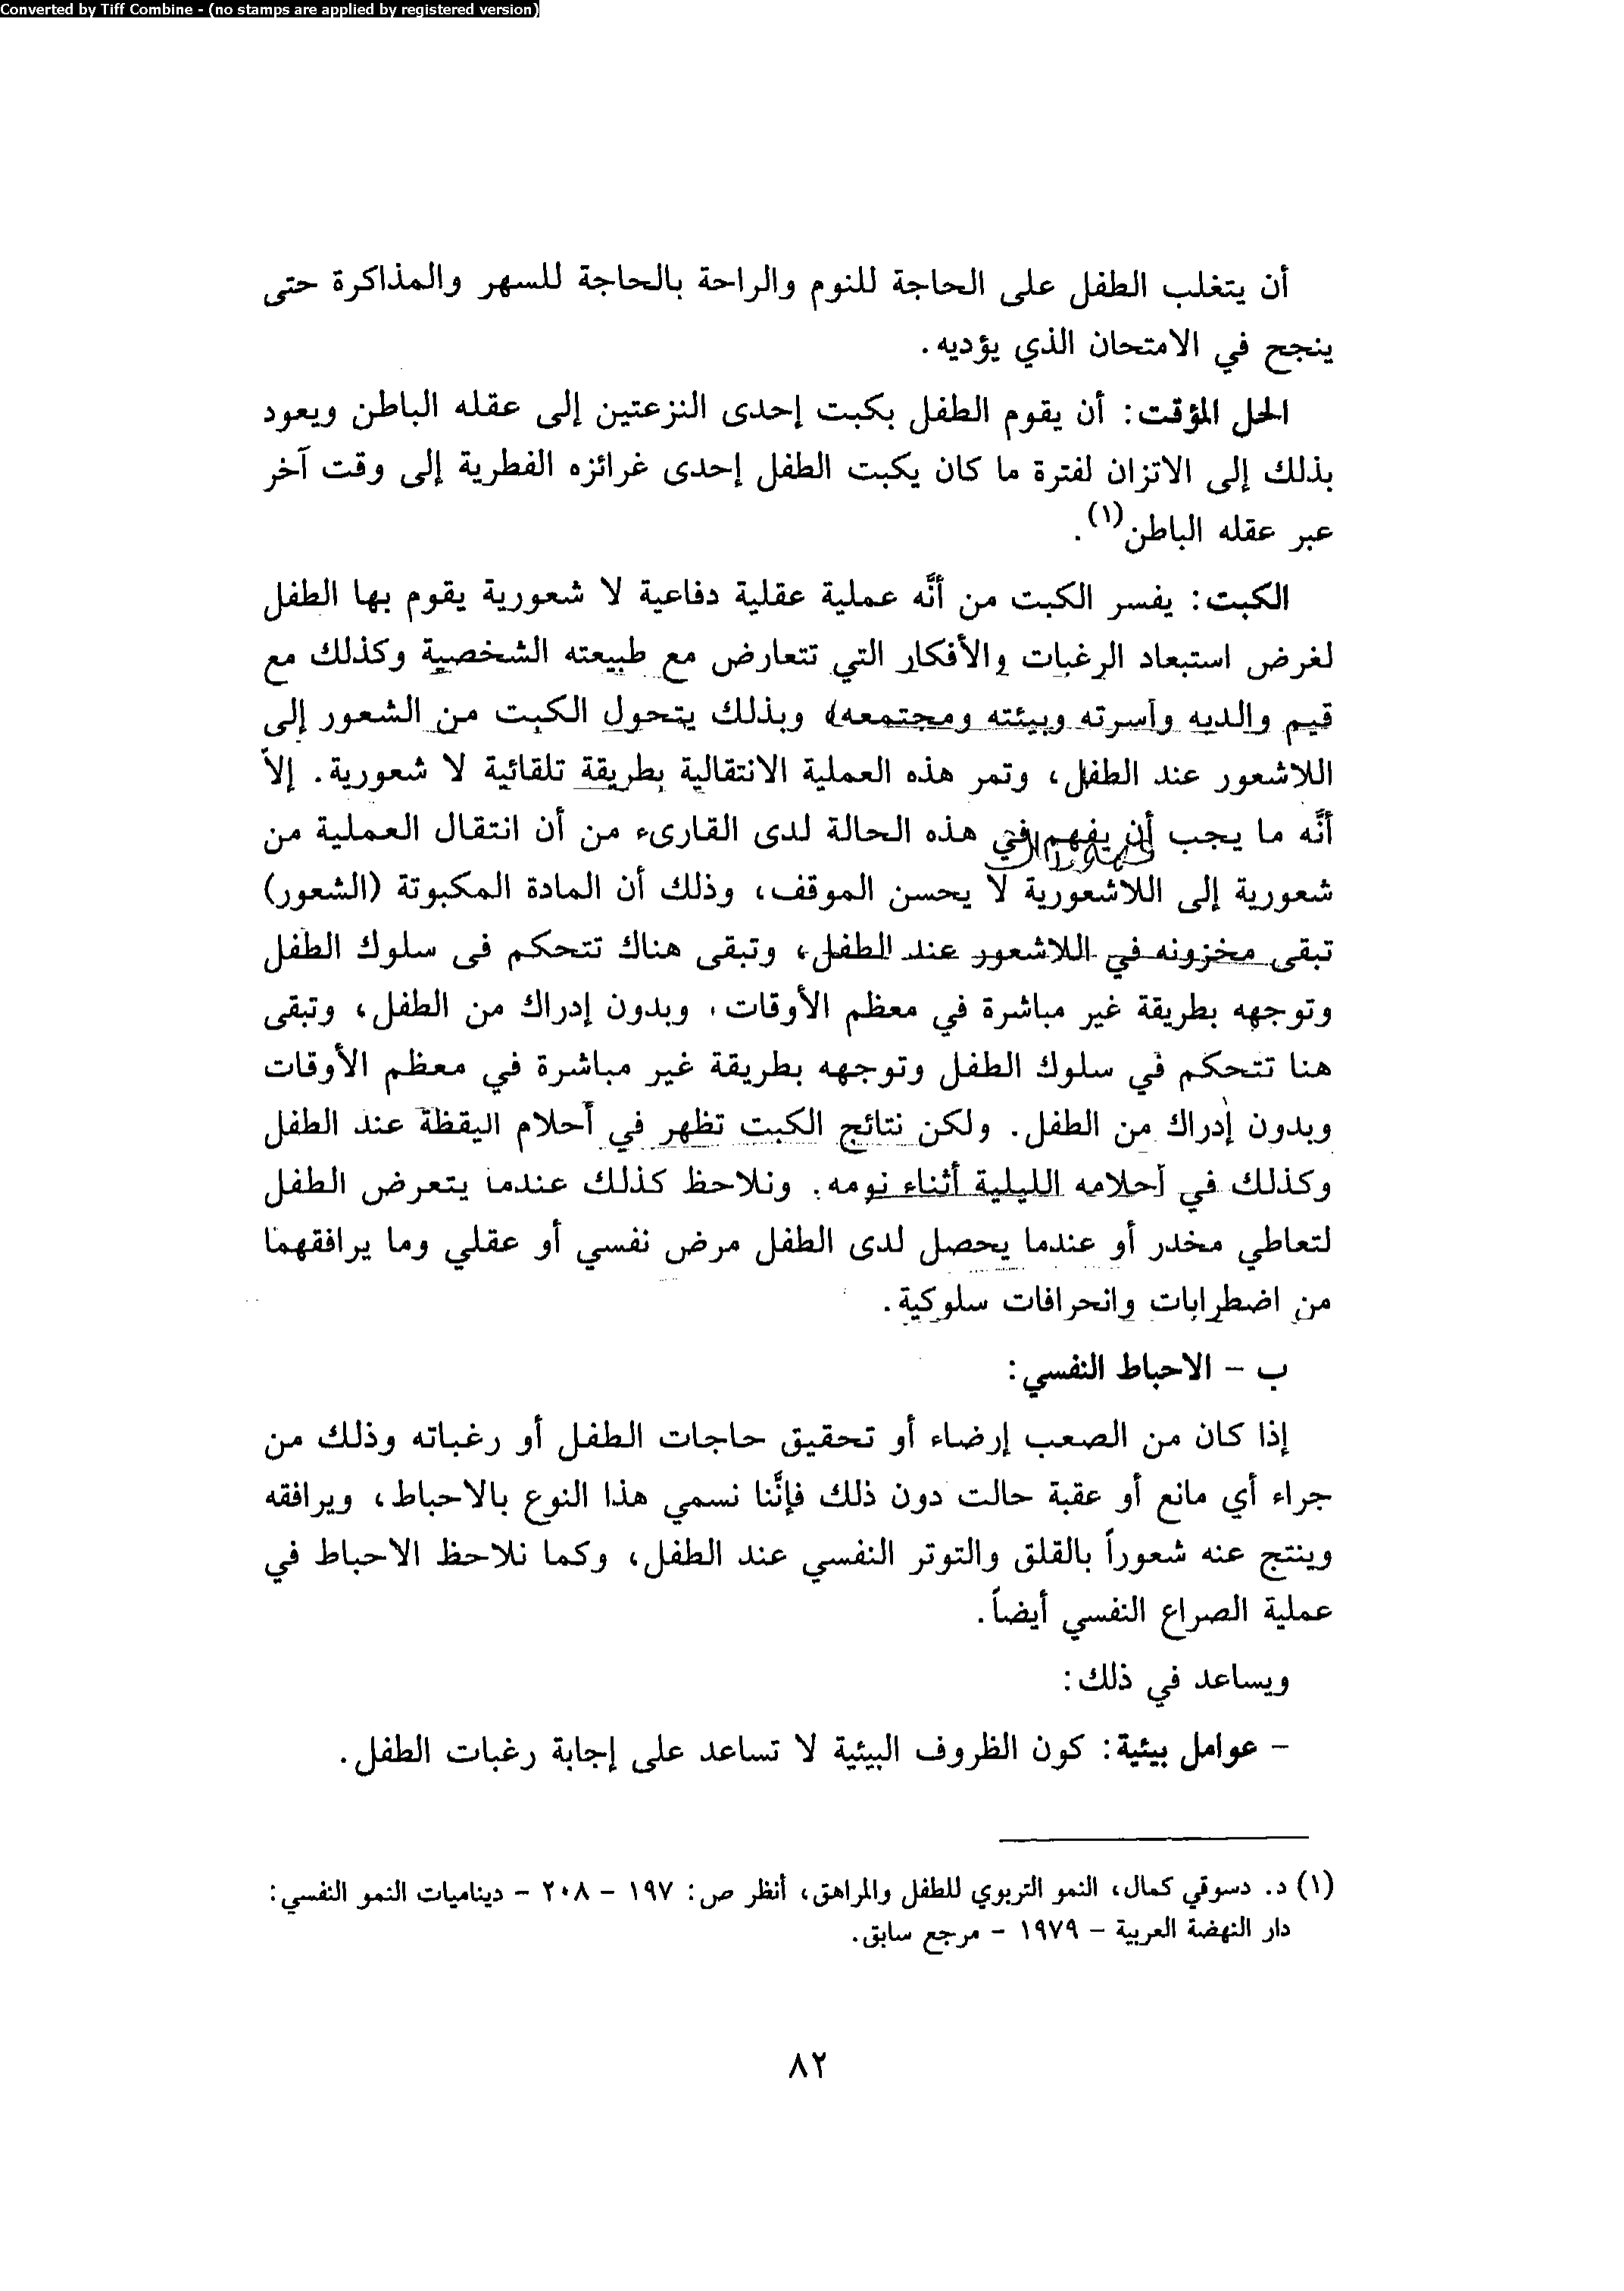 Converted by Tiff Combine - (no stamps are applied by registered version)
أن يتغلب الطفل على الحاجة للنوم والراحة بالحاجة للسهر والمذاكرة حتى
ينجح في الامتحان الذي يؤديه.
الحل المؤقت: أن يقوم الطفل بكبت إحدى النزعتين إلى عقله الباطن ويعود
بذلك إلى الاتزان لفترة ما كان يكبت الطفل إحدى غرائزه الفطرية إلى وقت آخر
عبر عقله الباطن(١).
الكبت: يفسر الكبت من أنَّه عملية عقلية دفاعية لا شعورية يقوم بها الطفل
لغرض استبعاد الرغبات والأفكار التي تتعارض مع طبيعته الشخصية وكذلك مع
قيم والديه وأسرته وبيئته ومجتمعه) وبذلك يتحول الكبت من الشعور إلى
اللاشعور عند الطفل، وتمر هذه العملية الانتقالية بطريقة تلقائية لا شعورية. إلاّ
أنَّه ما يجب أن يفهم في هذه الحالة لدى القارىء من أن انتقال العملية من
شعورية إلى اللاشعورية لا يحسن الموقف، وذلك أن المادة المكبوتة (الشعور)
تبقى مخزونه في اللاشعور عند الطفل، وتبقى هناك تتحكم فى سلوك الطفل
وتوجهه بطريقة غير مباشرة في معظم الأوقات، وبدون إدراك من الطفل، وتبقى
هنا تتحكم في سلوك الطفل وتوجهه بطريقة غير مباشرة في معظم الأوقات
وبدون إدراك من الطفل. ولكن نتائج الكبت تظهر في أحلام اليقظة عند الطفل
وكذلك في أحلامه الليلية أثناء نومه. ونلاحظ كذلك عندما يتعرض الطفل
لتعاطي مخدر أو عندما يحصل لدى الطفل مرض نفسي أو عقلي وما يرافقهما
من اضطرابات وانحرافات سلوكية.
ب - الاحباط النفسي:
إذا كان من الصعب إرضاء أو تحقيق حاجات الطفل أو رغباته وذلك من
جراء أي مانع أو عقبة حالت دون ذلك فإنَّنا نسمي هذا النوع بالاحباط، ويرافقه
وينتج عنه شعوراً بالقلق والتوتر النفسي عند الطفل، وكما نلاحظ الاحباط في
عملية الصراع النفسي أيضاً.
ويساعد في ذلك:
- عوامل بيئية: كون الظروف البيئية لا تساعد على إجابة رغبات الطفل.
(١) د. دسوقي كمال، النمو التربوي للطفل والمراهق، أنظر ص: ١٩٧ - ٢٠٨ - ديناميات النمو النفسي:
دار النهضة العربية - ١٩٧٩ - مرجع سابق.
٨٢